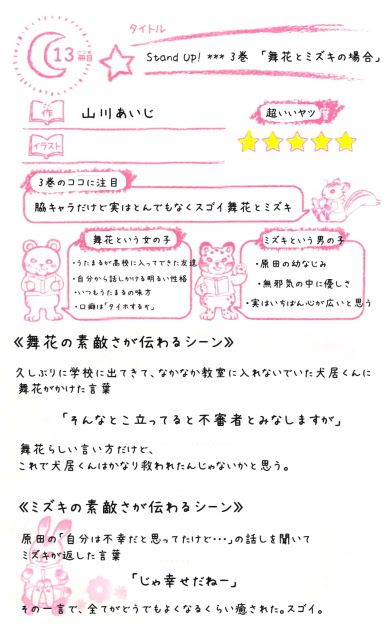 タイトル
13冊目
Stand Up! *** 3巻 「舞花とミズキの場合」
作 山川あいじ
超いいヤツ
イラスト
3巻のココに注目
脇キャラだけど実はとんでもなくスゴイ舞花とミズキ
舞花という女の子
・うたまるが高校に入ってできた友達
・自分から話しかける明るい性格
・いつもうたまるの味方
・口癖は「タイホするぞ」
ミズキという男の子
・原田の幼なじみ
・無邪気の中に優しさ
・実はいちばん心が広いと思う
《舞花の素敵さが伝わるシーン》
久しぶりに学校に出てきて、なかなか教室に入れないでいた犬居くんに
舞花がかけた言葉
「そんなとこ立ってると不審者とみなしますが」
舞花らしい言い方だけど、
これで犬居くんはかなり救われたんじゃないかと思う。
《ミズキの素敵さが伝わるシーン》
原田の「自分は不幸だと思ってたけど・・・」の話しを聞いて
ミズキが返した言葉
「じゃ幸せだねー」
その一言で、全てがどうでもよくなるくらい癒された。スゴイ。